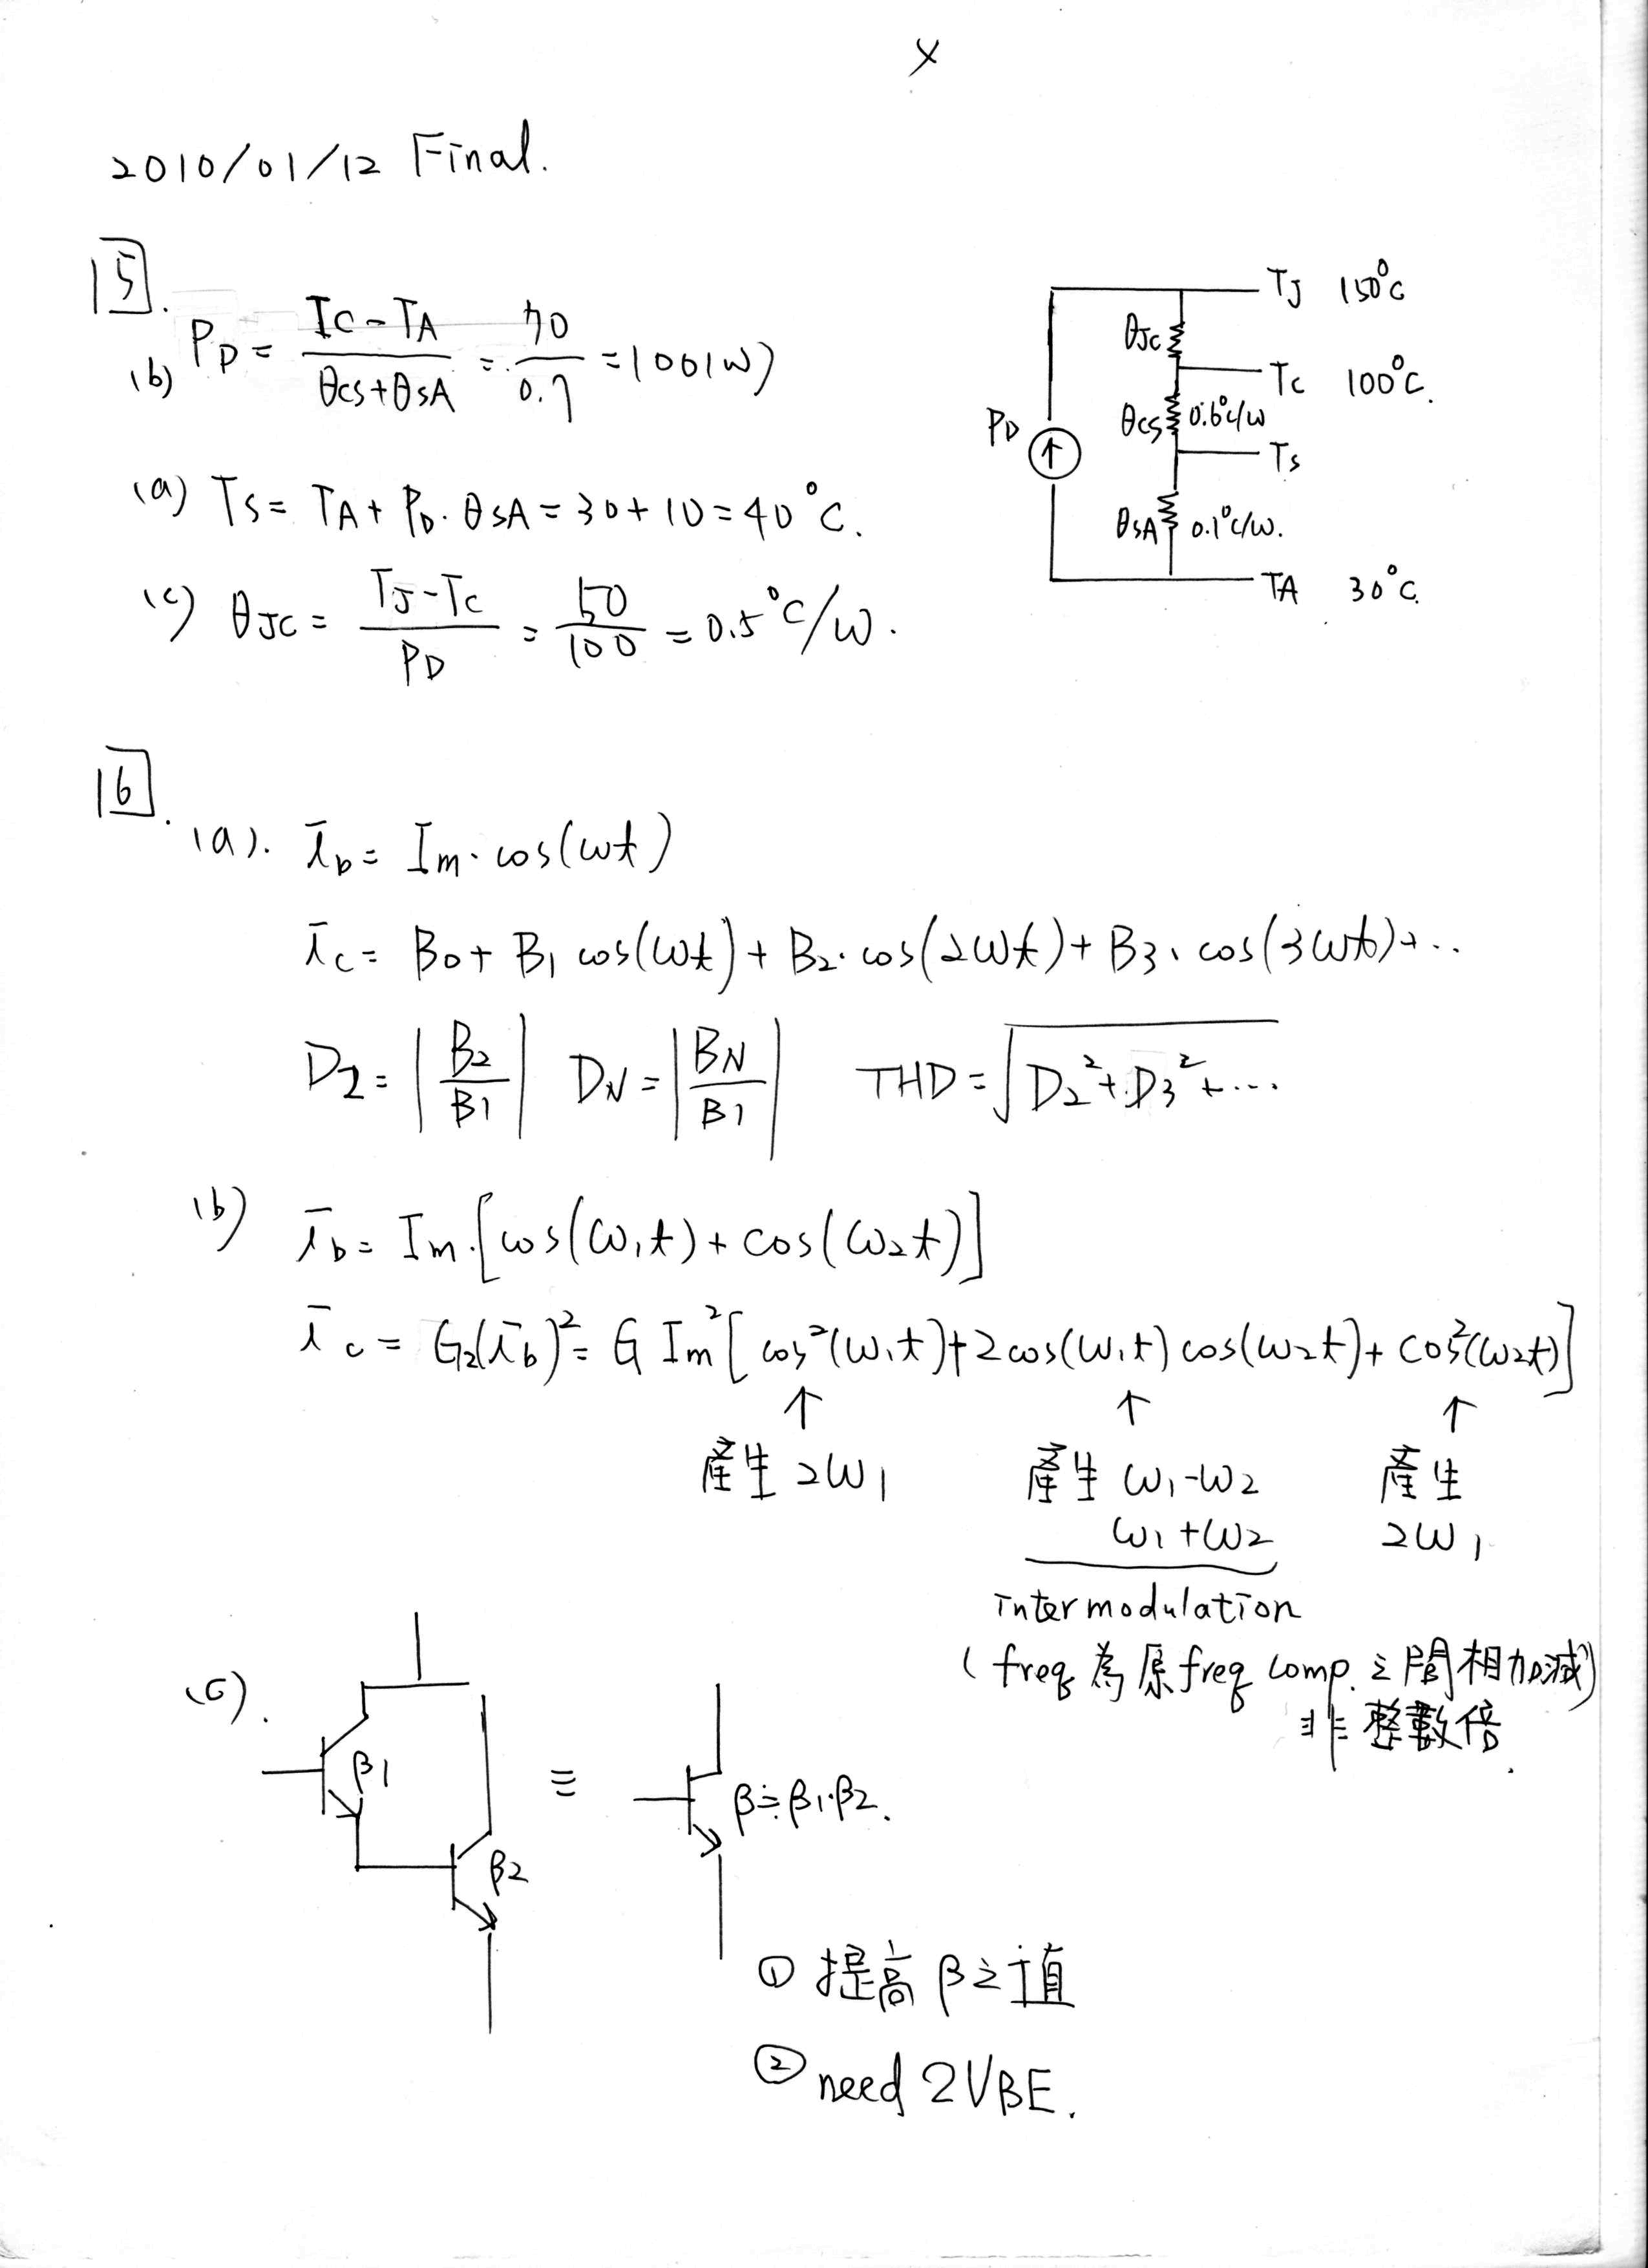 x
2010/01/12 Final.
15.
(b) PD = (TC-TA)/(θCS+θSA) = 70/0.7 = 100(W)
(a) TS = TA + PD·θSA = 30+10 = 40°C.
(c) θJC = (TJ-TC)/PD = 50/100 = 0.5°C/W.
TJ 150°C
θJC
TC 100°C.
PD
θCS 0.6°C/W
TS
θSA 0.1°C/W.
TA 30°C.
16.
(a). ib = Im·cos(ωt)
ic = B0 + B1 cos(ωt) + B2·cos(2ωt) + B3·cos(3ωt)+...
D2 = |B2/B1| DN = |BN/B1| THD = √(D2²+D3²+...)
(b) ib = Im·[cos(ω1t) + cos(ω2t)]
ic = G2(ib)² = G Im²[cos²(ω1t) + 2cos(ω1t)cos(ω2t) + cos²(ω2t)]
↑ ↑ ↑
產生 2ω1 產生 ω1-ω2 產生
ω1+ω2 2ω1
intermodulation
(freq 為原 freq comp. 之間相加減)
非整數倍.
(c).
β1
β2
≡
β≒β1·β2.
① 提高 β 之值
② need 2VBE.